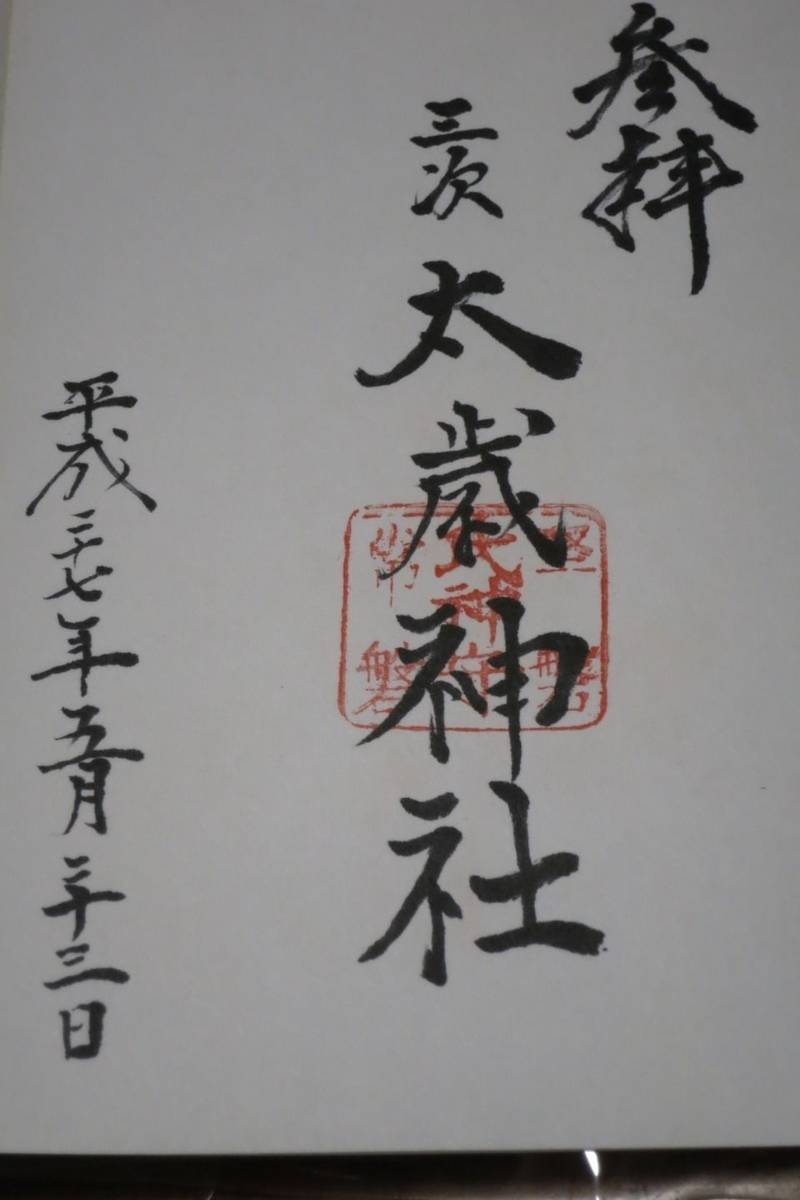 参拝
三次 太歳神社
平成二十七年五月二十三日